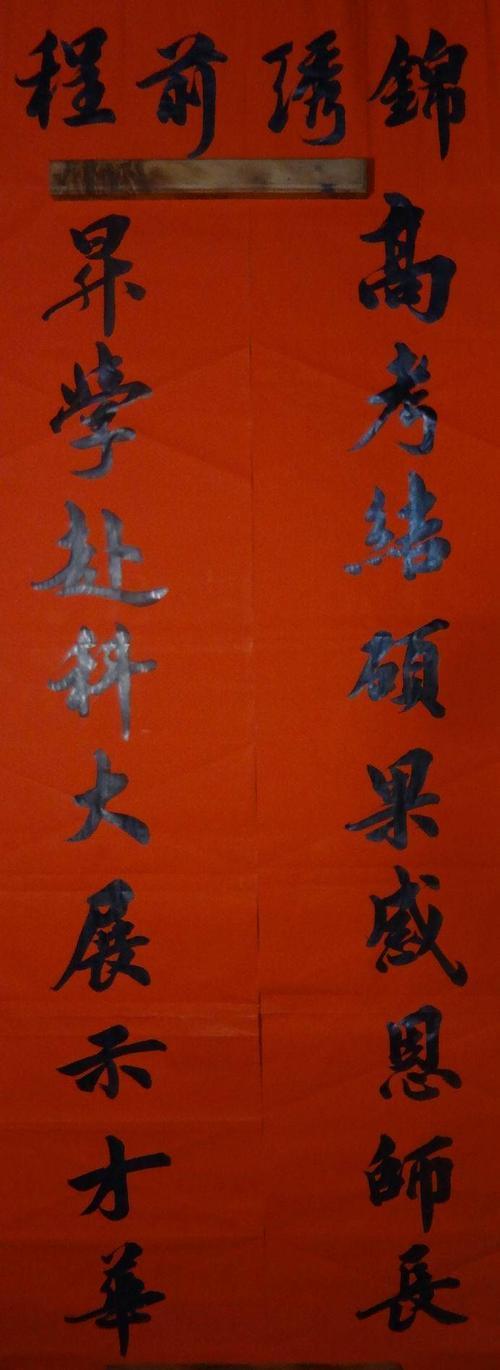 錦綉前程
高考結碩果感恩師長
昇學赴科大展示才華